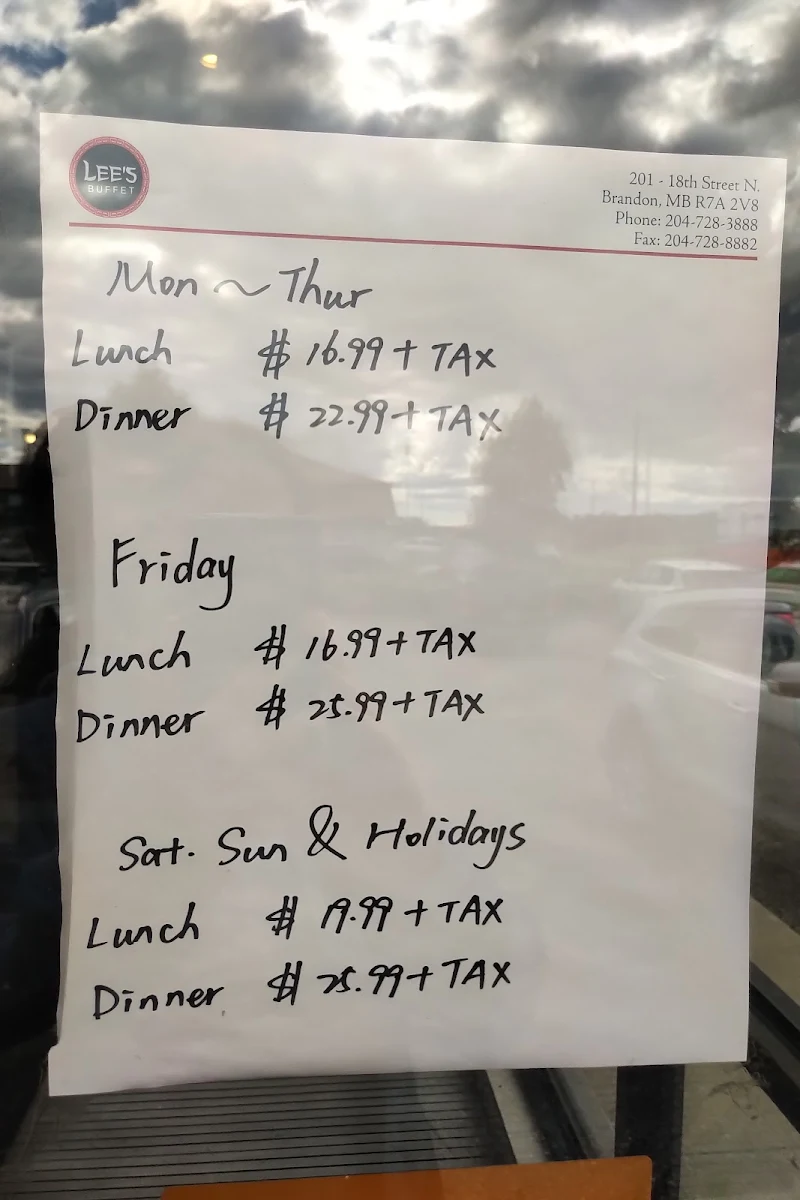 LEE'S
BUFFET
201 - 18th Street N.
Brandon, MB R7A 2V8
Phone: 204-728-3888
Fax: 204-728-8882
Mon ~ Thur
Lunch $ 16.99 + TAX
Dinner $ 22.99 + TAX
Friday
Lunch $ 16.99 + TAX
Dinner $ 25.99 + TAX
Sat. Sun & Holidays
Lunch $ 19.99 + TAX
Dinner $ 25.99 + TAX